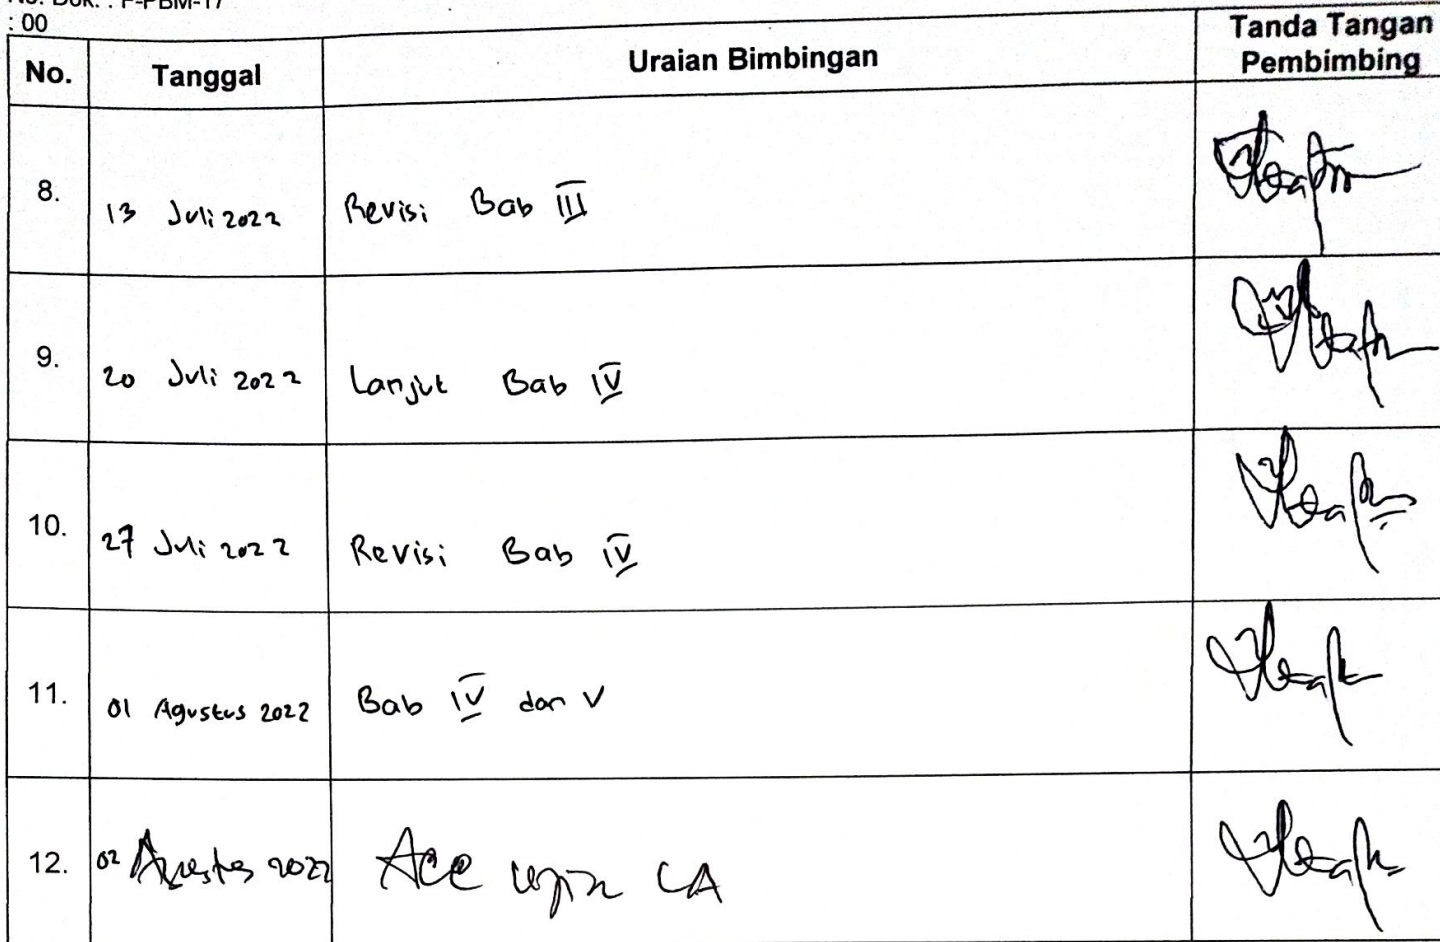 No. Dok. : F-PBM-17
: 00
No. Tanggal Uraian Bimbingan Tanda Tangan Pembimbing
8. 13 Juli 2022 Revisi Bab III
9. 20 Juli 2022 Lanjut Bab IV
10. 27 Juli 2022 Revisi Bab IV
11. 01 Agustus 2022 Bab IV dan V
12. 02 Agustus 2022 Acc